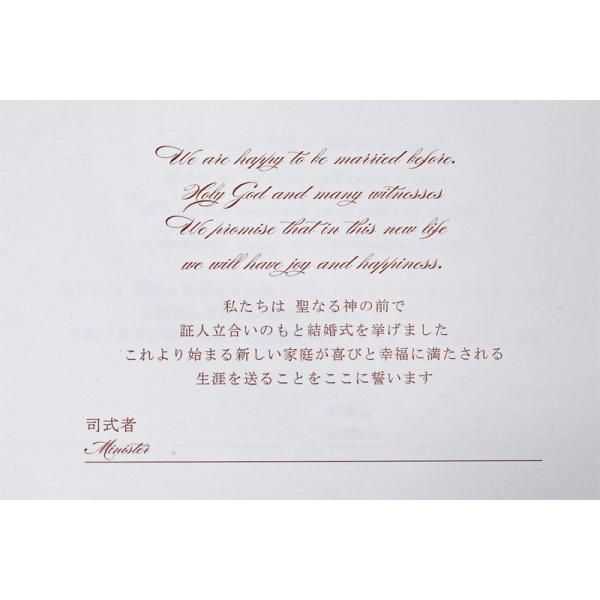 We are happy to be married before.
Holy God and many witnesses
We promise that in this new life
we will have joy and happiness.
私たちは 聖なる神の前で
証人立合いのもと結婚式を挙げました
これより始まる新しい家庭が喜びと幸福に満たされる
生涯を送ることをここに誓います
司式者
Minister